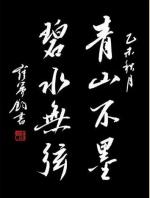 乙未秋月
青山不墨
碧水無弦